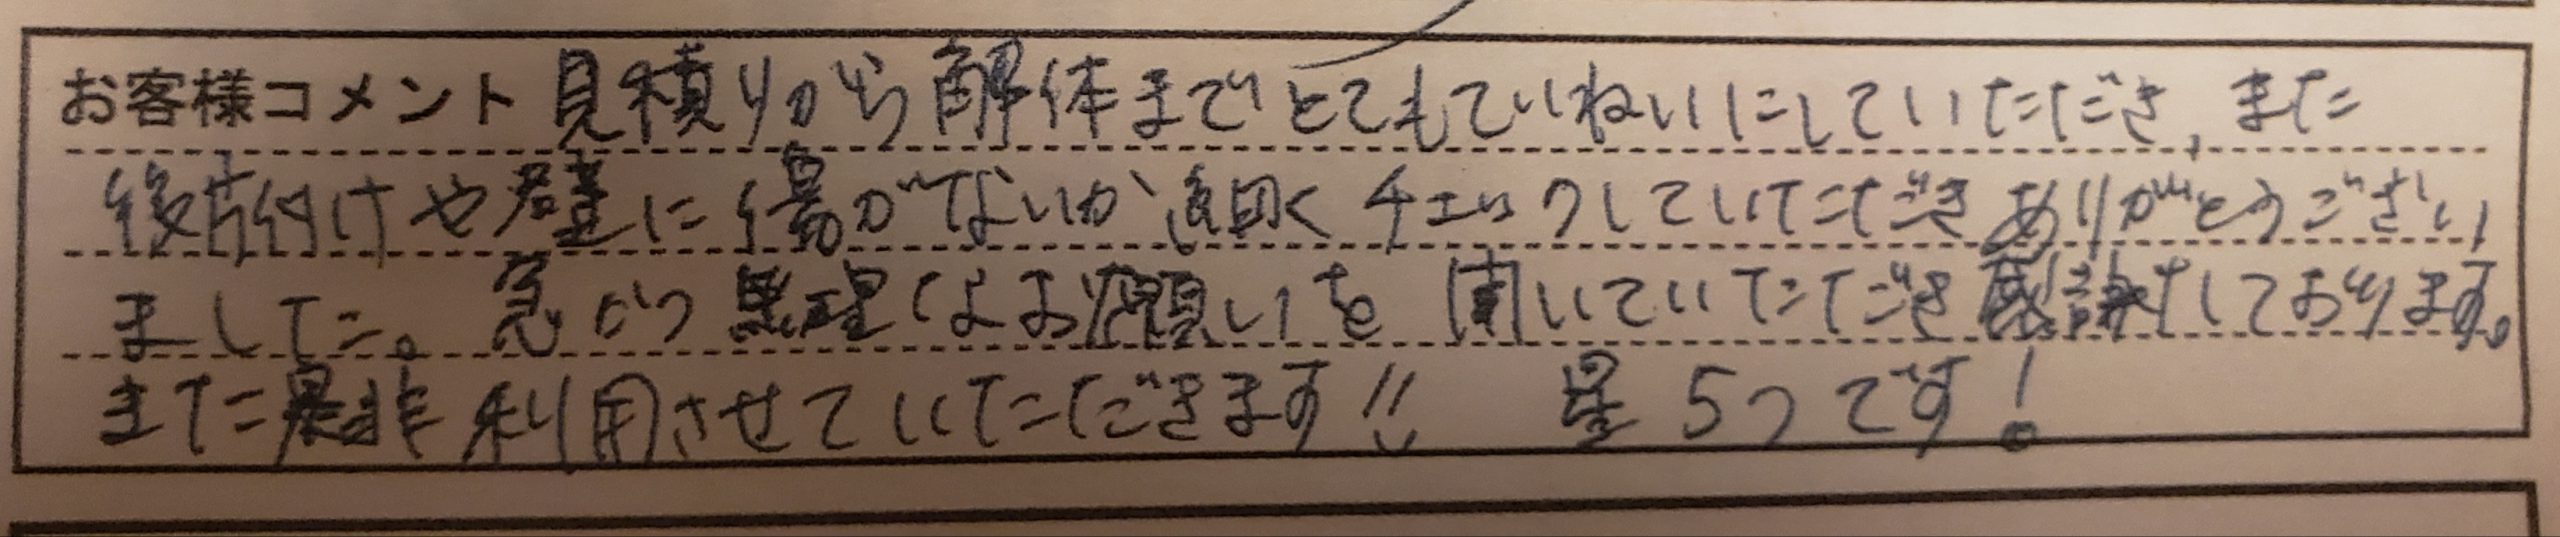 お客様コメント 見積りから解体までとてもていねいにしていただき、また
後片付けや壁に傷がないか細く チェックしていただき ありがとうござい
ました。急かつ無理なお願いを聞いていただき感謝しております。
また是非利用させていただきます!! 星5つです!